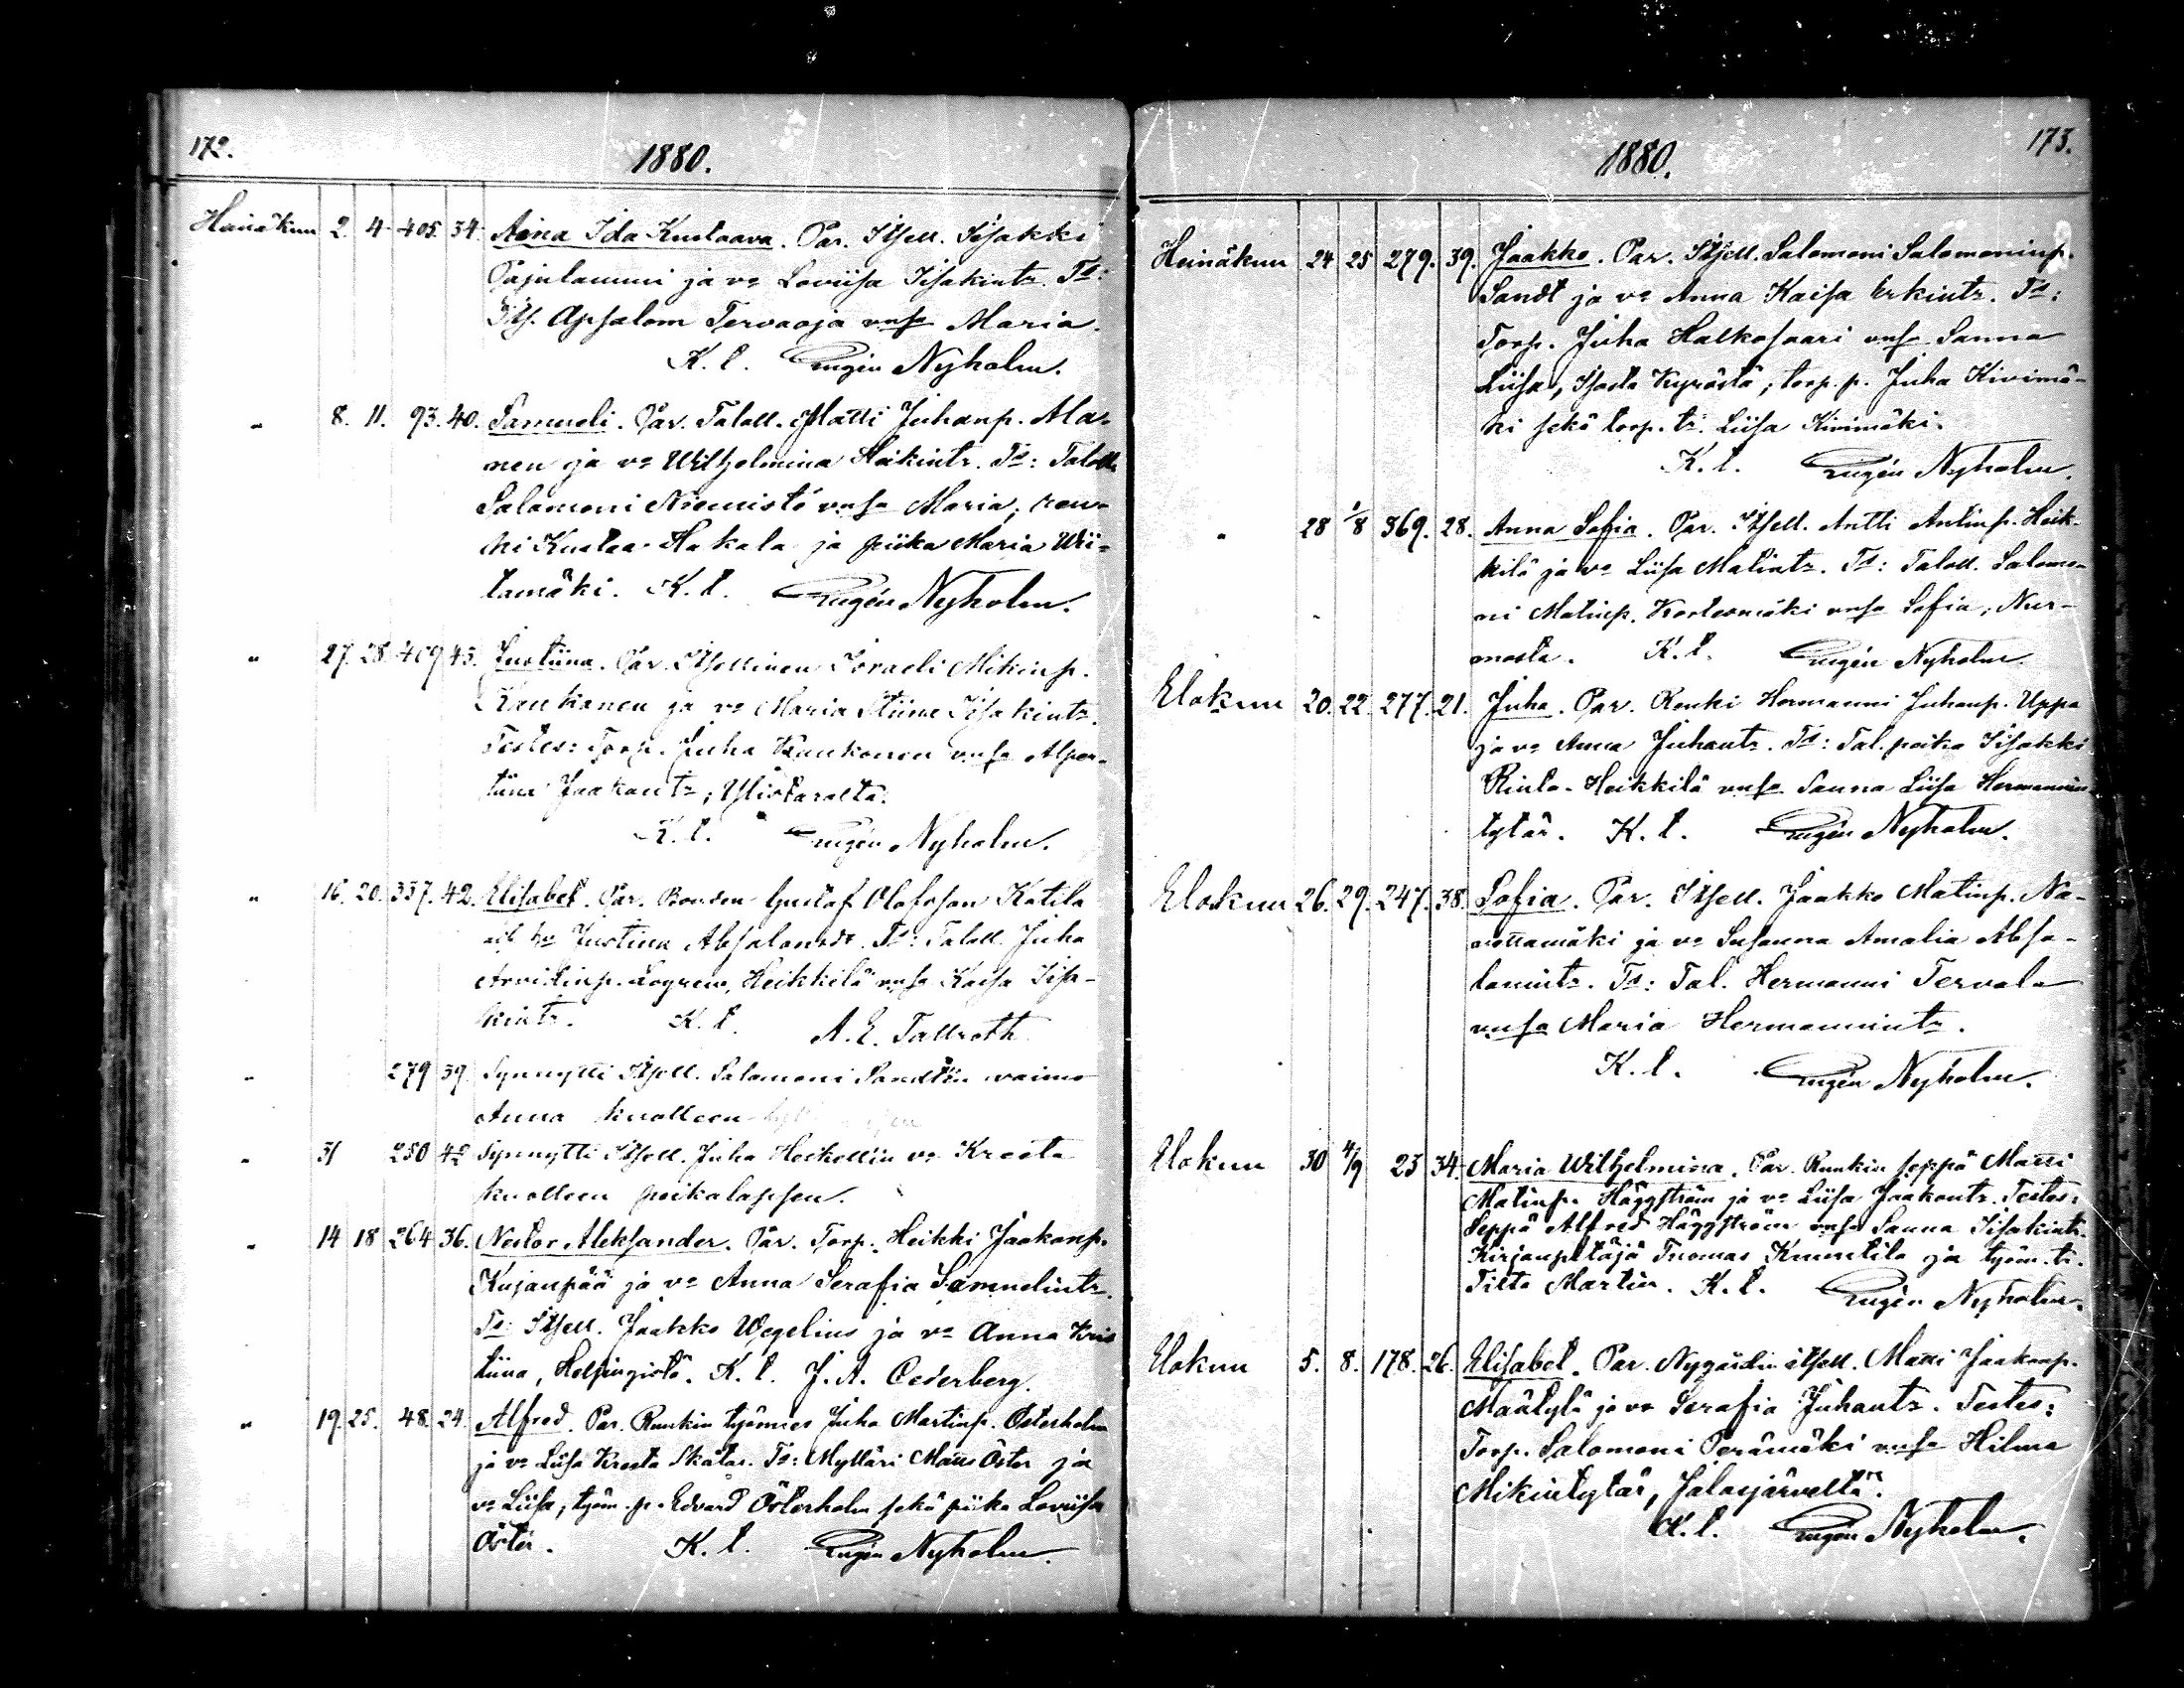 172.
1880.
Heinäkuu 2. 4 405. 34. Aina Ida Kustaava. Par. Itsell. Iisakki
Pajulammi ja vo Loviisa Iisakintr. Ts:
Its. Apsalom Tervaoja vnsa Maria.
K. t. Eugén Nyholm.
" 8. 11. 93. 40. Samueli. Par. Taloll. Matti Juhanp. Ala-
nen ja vo Wilhelmina Heikintr. Ts: Taloll.
Salomoni Niemistö vnsa Maria, ren-
ki Kustaa Hakala ja piika Maria Wii-
tamäki. K. t. Eugén Nyholm.
" 27. 28. 409 45. Justiina. Par. Itsellinen Israeli Mikinp.
Kaukonen ja vo Maria Stiina Iisakintr.
Testes: Torp. Juha Kaukonen vnsa Alper-
tiina Jaakontr, Ylistarolta.
K. t. Eugén Nyholm.
" 16. 20. 337. 42. Elisabet. Par. Bonden Gustaf Olofsson Katila
och hu Justina Absalonsdr. Ts: Taloll. Juha
Arvidinp. Logren, Heikkilä vnsa Kaisa Iisa-
kintr. K. t. A. E. Tallroth
" 279 39. Synnytti Itsell. Salomoni Sandtin vaimo
Anna kuolleen
" 31 250 42 Synnytti Itsell. Juha Heikellin vo Kreeta
kuolleen poikalapsen.
" 14 18 264 36. Nestor Aleksander. Par. Torp. Heikki Jaakonp.
Kujanpää ja vo Anna Serafia Samuelintr.
Ts: Itsell. Jaakko Wegelius ja vo Anna Kris
tiina, Helsingistä. K. t. J. A. Cederberg.
" 19. 25. 48. 24. Alfred. Par. Ruukin työmies Juha Martinp. Österholm
ja vo Liisa Kreeta Skåtar. Ts: Mylläri Matts Öster ja
vo Liisa, työm. p. Edvard Österholm sekä piika Loviisa
Öster. K. t. Eugén Nyholm.
173.
1880.
Heinäkuu 24 25 279. 39. Jaakko. Par. Itsell. Salomoni Salomoninp.
Sandt ja vo Anna Kaisa Erkintr. Ts:
Torp. Juha Halkosaari vnsa Sanna
Liisa, Isosta Kyröstä; torp. p. Juha Kivimä-
ki sekä torp. tr. Liisa Kivimäki.
K. t. Eugén Nyholm.
" 28 1/8 369. 28. Anna Sofia. Par. Itsell. Antti Antinp. Heik-
kilä ja vo Liisa Matintr. Ts: Taloll. Salomo-
ni Matinp. Kortesmäki vnsa Sofia, Nur-
mosta. K. t. Eugén Nyholm.
Elokuu 20. 22. 277. 21. Juha. Par. Renki Hermanni Juhanp. Uppa
ja vo Anna Juhantr. Ts: Tal. poika Iisakki
Rinta-Heikkilä vnsa Sanna Liisa Hermannin-
tytär. K. t. Eugén Nyholm.
Elokuu 26. 29. 247. 38. Sofia. Par. Itsell. Jaakko Matinp. Na-
vettamäki ja vo Susanna Amalia Absa-
lamintr. Ts: Tal. Hermanni Tervala
vnsa Maria Hermannintr.
K. t. Eugén Nyholm.
Elokuu 30 4/9 23 34. Maria Wilhelmina. Par. Ruukin seppä Matti
Matinp. Häggström ja vo Liisa Jaakontr. Testes:
Seppä Alfred Häggström vnsa Sanna Iisakintr.
Kirjanpitäjä Tuomas Kuuntila ja työm. tr.
Tilta Martin. K. t. Eugén Nyholm.
Elokuu 5. 8. 178. 26. Elisabet. Par. Nygårdin itsell. Matti Jaakonp.
Määtylä ja vo Serafia Juhantr. Testes:
Torp. Salomoni Perämäki vnsa Hilma
Mikintytär, Jalasjärveltä.
K. t. Eugén Nyholm.